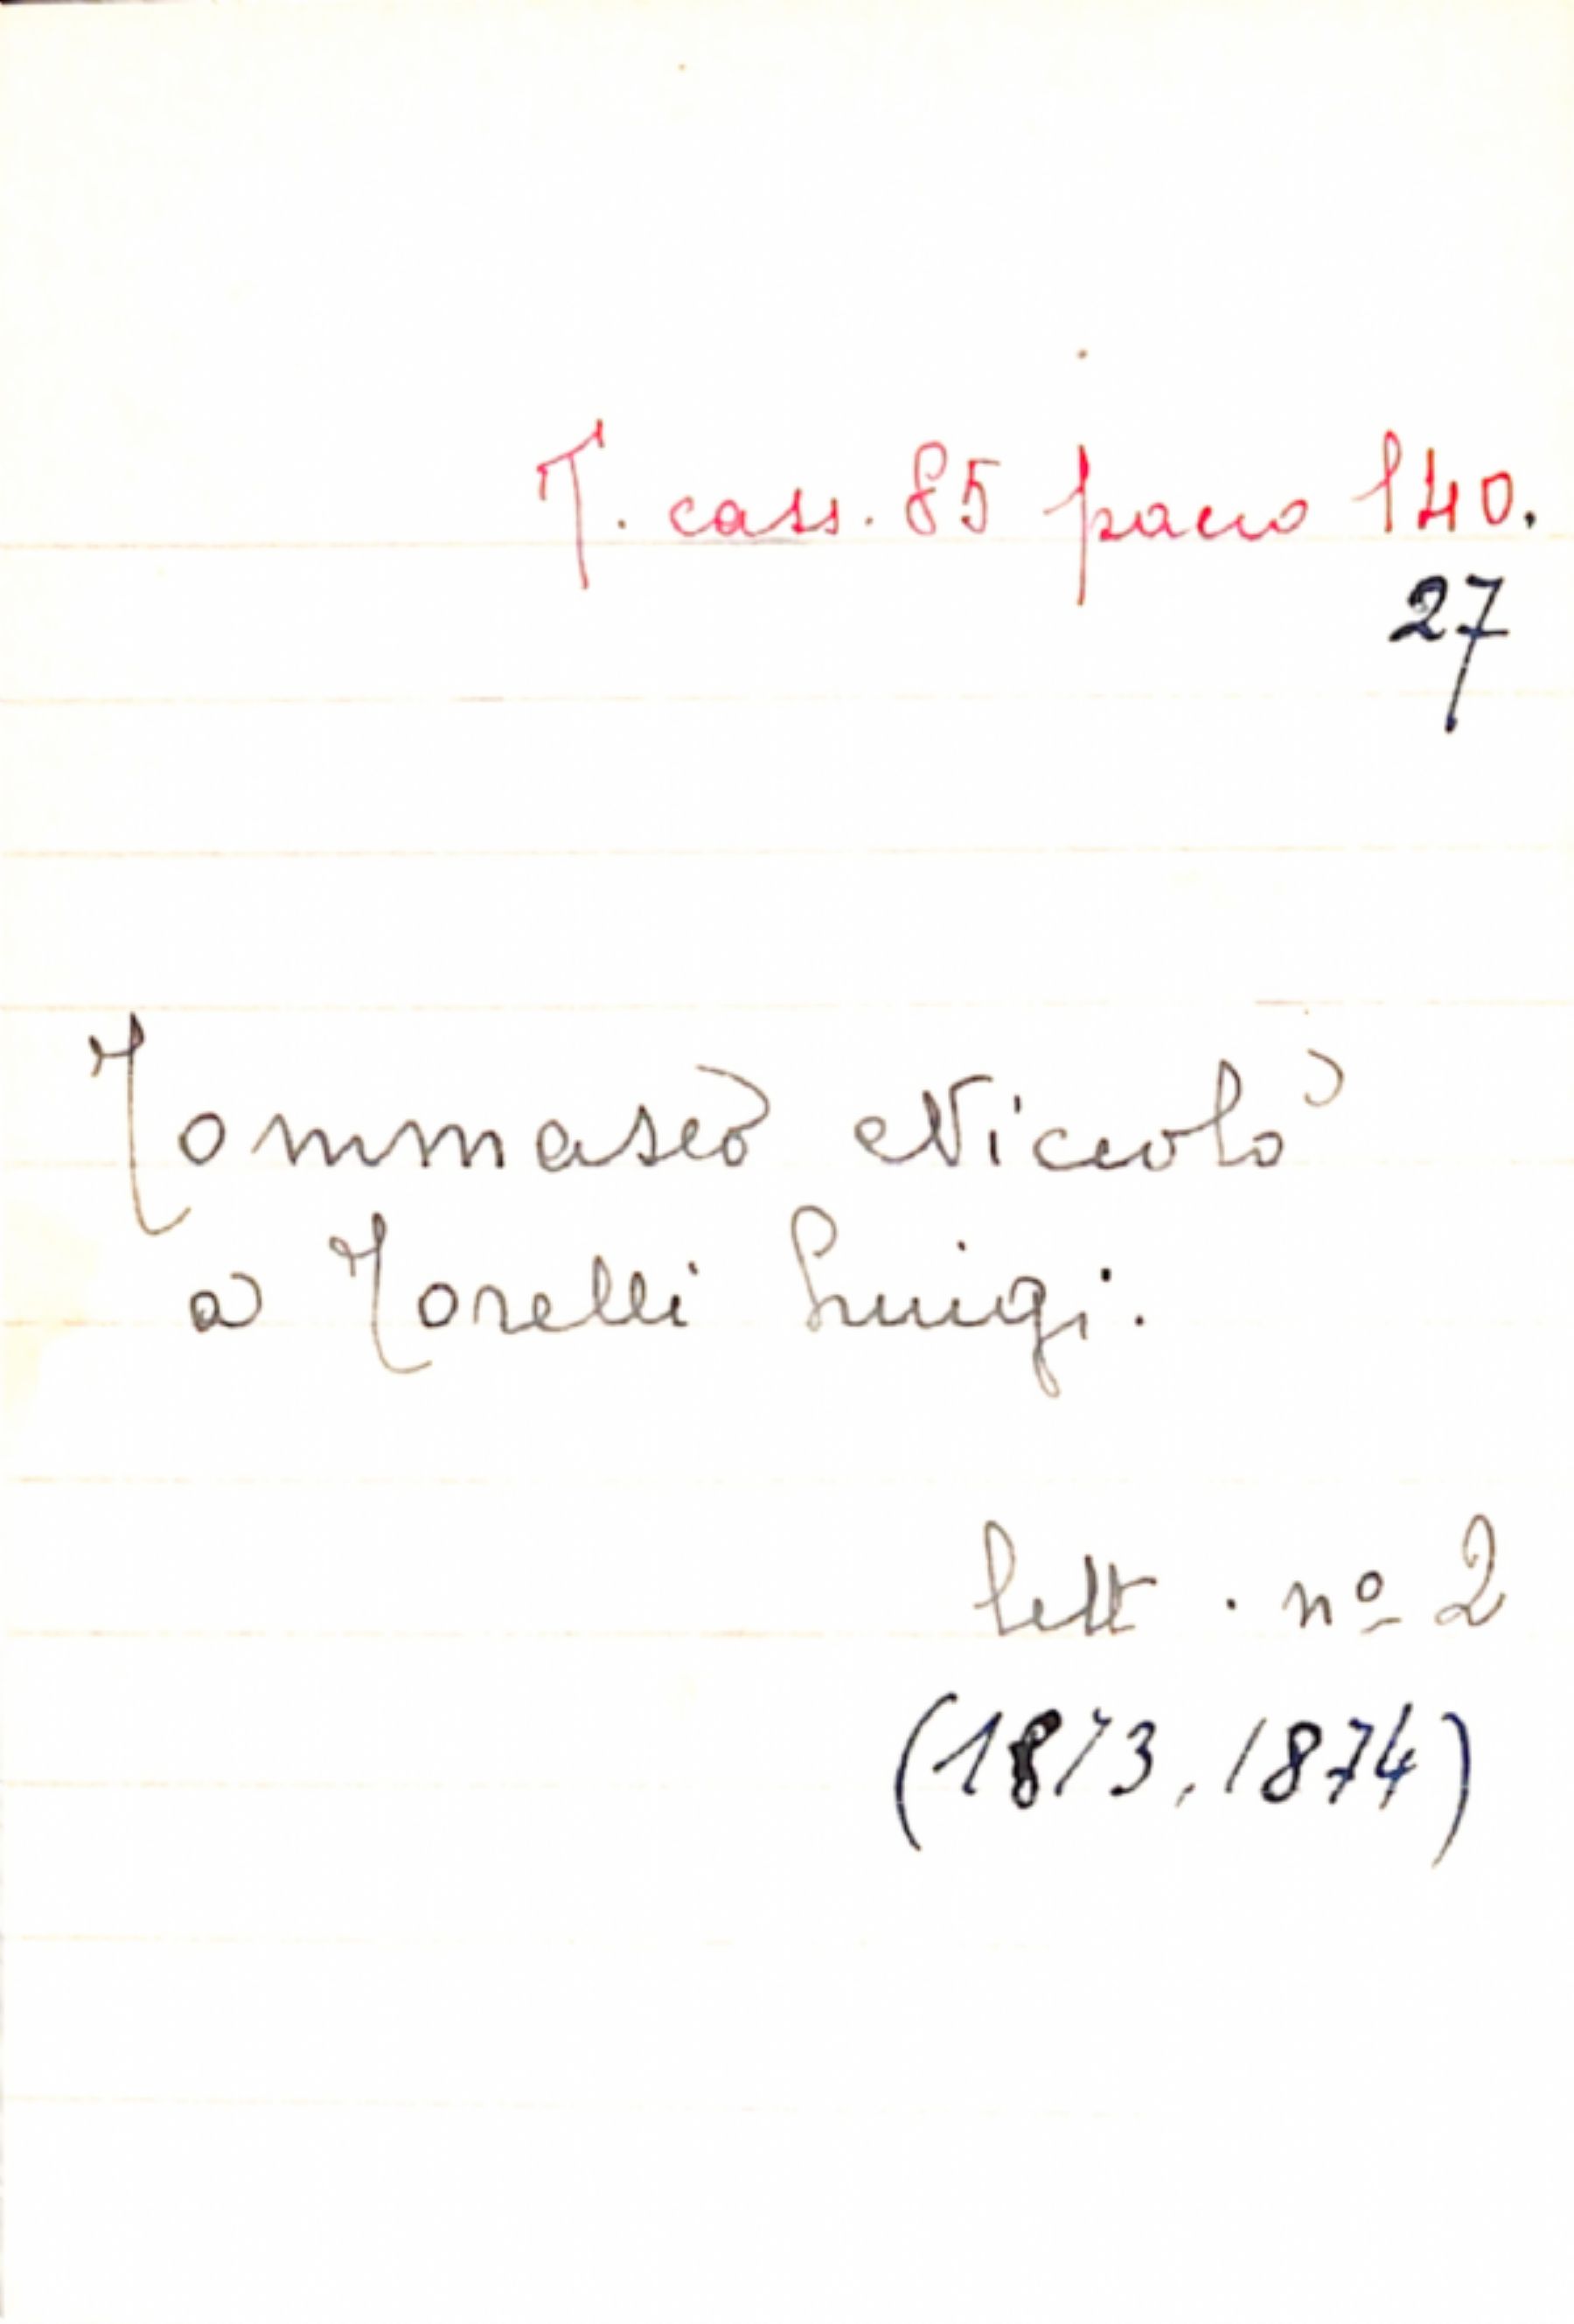 T. cass. 85 pacco 140.
27
Tommaseo Niccolò
a Torelli Luigi.
lett. nº 2
(1873, 1874)